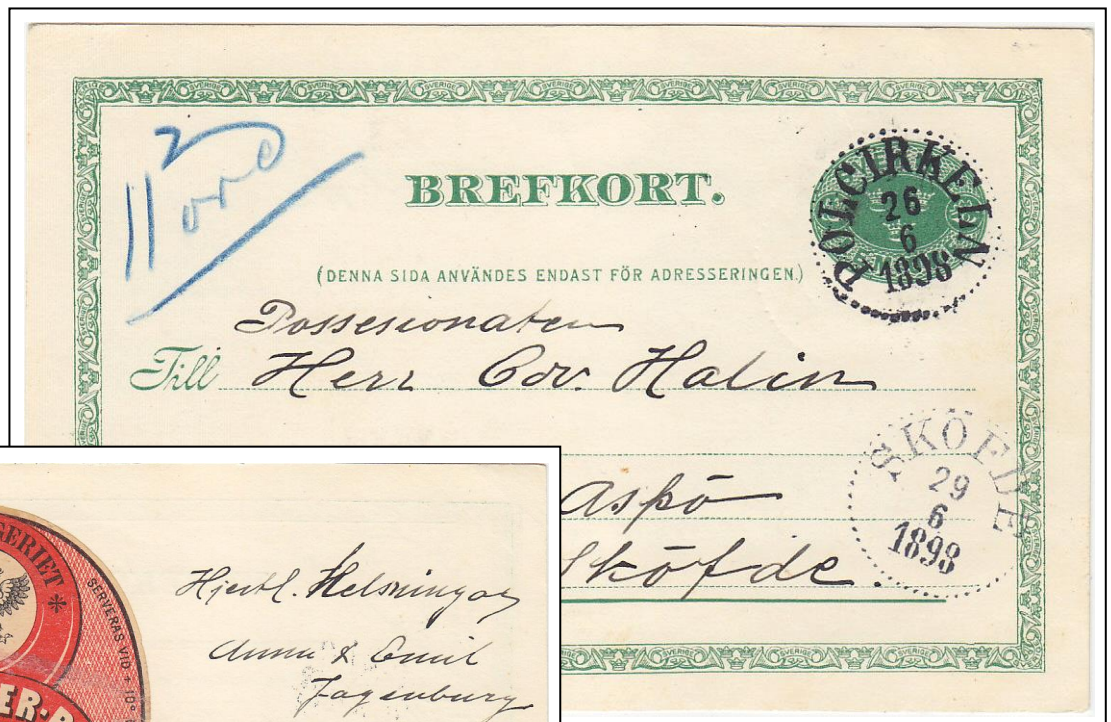 11 2 öre
BREFKORT.
POLCIRKELN
26
6
1898
(DENNA SIDA ANVÄNDES ENDAST FÖR ADRESSERINGEN.)
Possesionaten
Till Herr Edv. Halin
Aspö
Sköfde.
SKÖFDE
29
6
1898
GERIET *
SERVERAS VID + 10°
ER-
Hjertl. Helsningar
Anna & Emil
Fagenburg